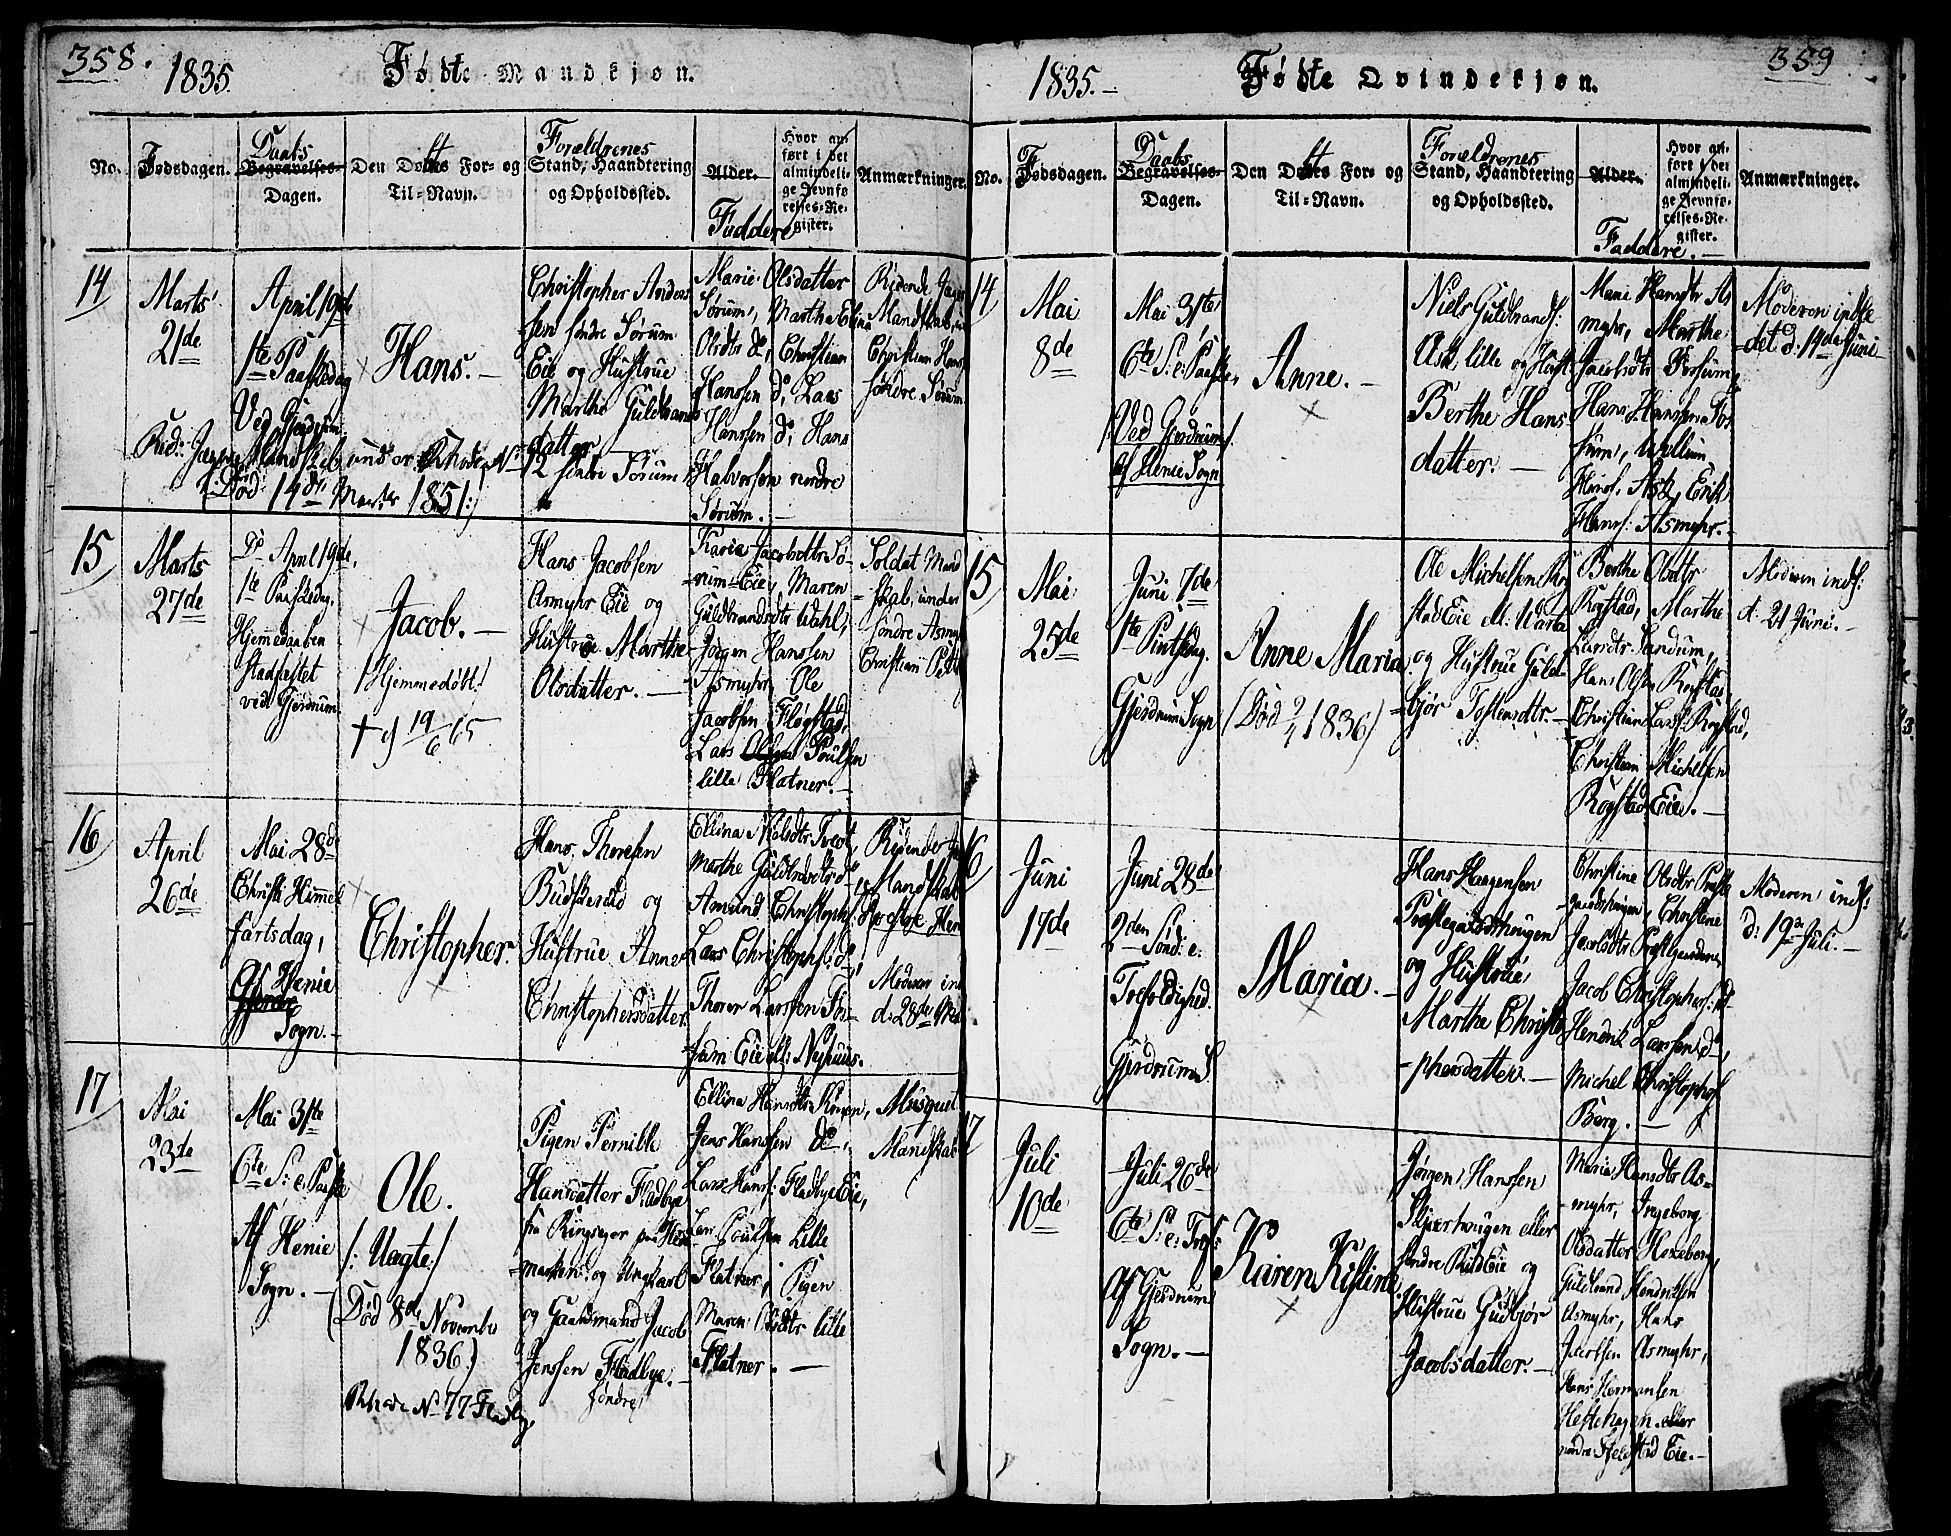 358.
1835.
Fødte Mandkjøn.
No.
Fødsdagen.
Daabs
Begravelses-
Dagen.
Den Døbtes For- og
Til-Navn.
Forældrenes
Stand, Haandtering
og Opholdssted.
Alder.
Faddere
Hvor an-
ført i det
almindeli-
ge Jevnfø-
relses-Re-
gister.
Anmærkninger.
14
Marts
21de
April 19de
1ste Paaskedag
Ved Gjerdrum
Hans. -
Christopher Anders
sen søndre Sørum
Eie og Hustrue
Marthe Guldbrands
datter
Marie Olsdatter
Sørum, Marthe Elina
Olsdtr do, Christian
Hanssen do, Lars
Hanssen do, Hans
Halvorsen nordre
Sørum. -
Ridende Jæger
Mandskab,
Christian Hans
søndre Sørum
søndre Sørum
Død 14de Marts 1851:)
15
Marts
27de
Do April 19de,
1te Paaskedag,
Hjemmedaaben
stadfæstet
ved Gjerdrum
Jacob. -
/Hjemmedøbt/
† 19/6 65
Hans Jacobsen
Asmyhr Eie og
Hustrue Marthe
Olsdatter. -
Karie Jacobsdtr Sø-
rum Eie, Maren
Guldbrandsdtr Udahl,
Jørgen Hanssen
Asmyhr, Ole
Jacobsen Fløgstad,
Lars Olsen Poulsen
lille Flatner. -
Soldat Mand
skab, under
søndre Asmyhr
Christian
16
April
26de
Mai 28de
Christi Himmel
fartsdag,
Af Henie
Sogn. -
Christopher.
Hans Thoresen
Budskerud og
Hustrue Anne
Christophersdatter.
Ellina Nielsdtr Tveot,
Marthe Guldbrdsdtr do,
Amund Christophs.
Lars Christophs. do,
Thorer Larssen Sør-
sum Eie ell: Nyhuus.
Ridende
Mandskab
Moderen ind
d. 28de Mai
17
Mai
23de
Mai 31te
6te S: e: Paaske
Af Henie
Sogn. -
Ole.
/: Uægte:/
(Død 8de November
1836)
Rhode No 77 Fladbye
Pigen Pernille
Hansdatter Fladbye
fra Ringsager paa Hede
marken og Ungkarl
og Gaardmand Jacob
Jenssen Fladbye. -
søndre
Ellina Hansdtr
Jens Hanssen do,
Lars Hans: Fladbye Eie,
Poulsen Lille
Flatner, Pigen
Maren lille
Flatner. -
Musquet
Mandskab
359
1835. -
Fødte Qvindekjøn.
No.
Fødsdagen.
Daabs
Begravelses-
Dagen.
Den Døbtes For- og
Til-Navn.
Forældrenes
Stand, Haandtering
og Opholdssted.
Alder.
Faddere. -
Hvor an-
ført i det
almindeli-
ge Jevnfø-
relses-Re-
gister.
Anmærkninger.
14
Mai
8de
Mai 31te
6te S: e: Paaske,
/Ved Gjerdrum/
Af Henie Sogn
Anne. -
Niels Guldbrands:
Ask lille og Hust:
Berthe Hans
datter. -
Marie Hansdtr As
myhr, Marthe
Jacobsdtr
Hans Hanssen
Ask, Erik
Hans: Asmyhr. -
Moderen indle
det d. 14de Juni
15
Mai
25de
Juni 7de
1te Pintsedag.
Gjerdrum Sogn
Anne Maria
(Død 9/1 1836)
Ole Michelsen Rog
stad Eie
og Hustrue Guld-
bjør Tostensdtr. -
Berthe Olsdtr
Rogstad, Marthe
Larsdtr
Hans Olsen Rogstad
Christian Lars: Rogstad,
Christian Michelsen
Rogstad Eie. -
Moderen indl:
d. 21 Juni. -
16
Juni
17de
Juni 28de
2den Sønd: e:
Trefoldighed.
Gjerdrum S.
Maria. -
Hans Haagensen
Præstegaardshaugen
og Hustrue
Marthe Christo
-phersdatter. -
Christine Olsdtr Præste
gaardshaugen, Christine
Jacobsdtr
Jacob Christophers:
Hendrik Larssen do,
Michel Christophs
Berg. -
Moderen indl:
d: 19de Juli. -
17
Juli
10de
Juli 26de
6te S: e: Tref:
Af Gjerdrum
Sogn. -
Karen Kistine
Jørgen Hanssen
Skjærhaugen eller
søndre Eie og
Hustrue Gudbjør
Jacobsdatter. -
Maria Hansdtr As-
-myhr, Ingeborg
Olsdatter Hexeberg,
Guldbrand Hendriksen
Asmyhr, Hans
Jacobsen Asmyhr,
Hans Hermansen
Heftehagen eller
Eie. -